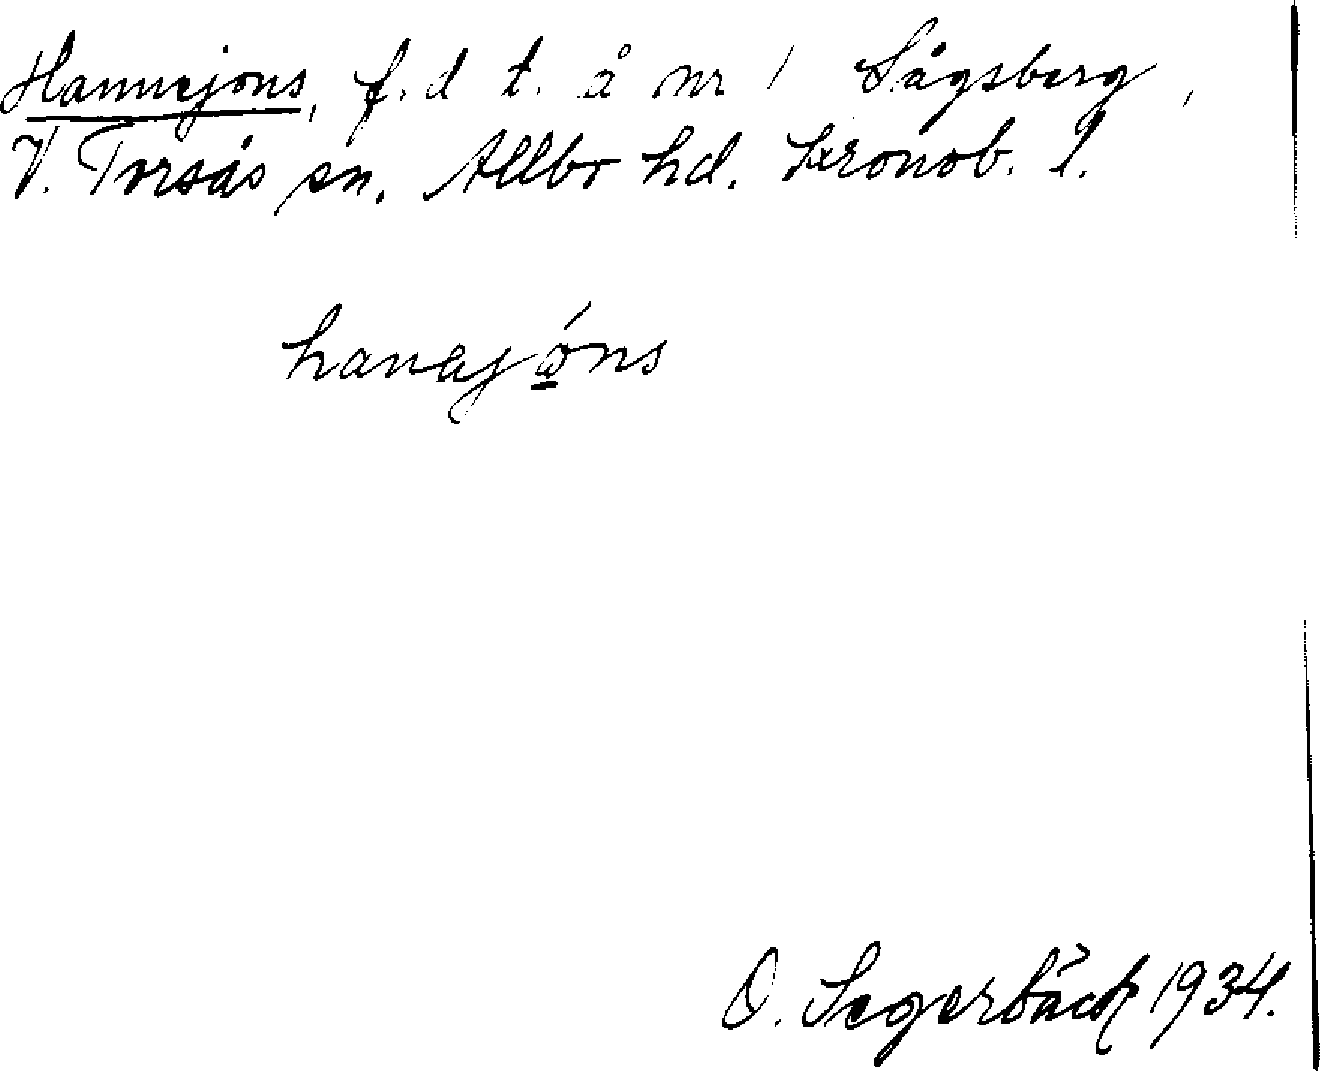 Hannejons, f.d t. å nr 1 Sågsberg,
V. Torsås sn. Allbo hd. Kronob. l.
hanaj ó̲ns
O. Segerbäck 1934.